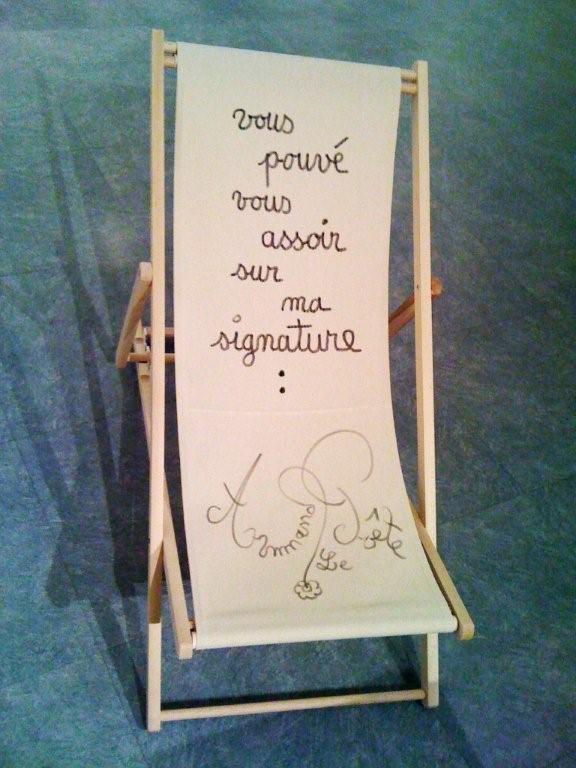 vous
pouvé
vous
assoir
sur
ma
signature
:
Le